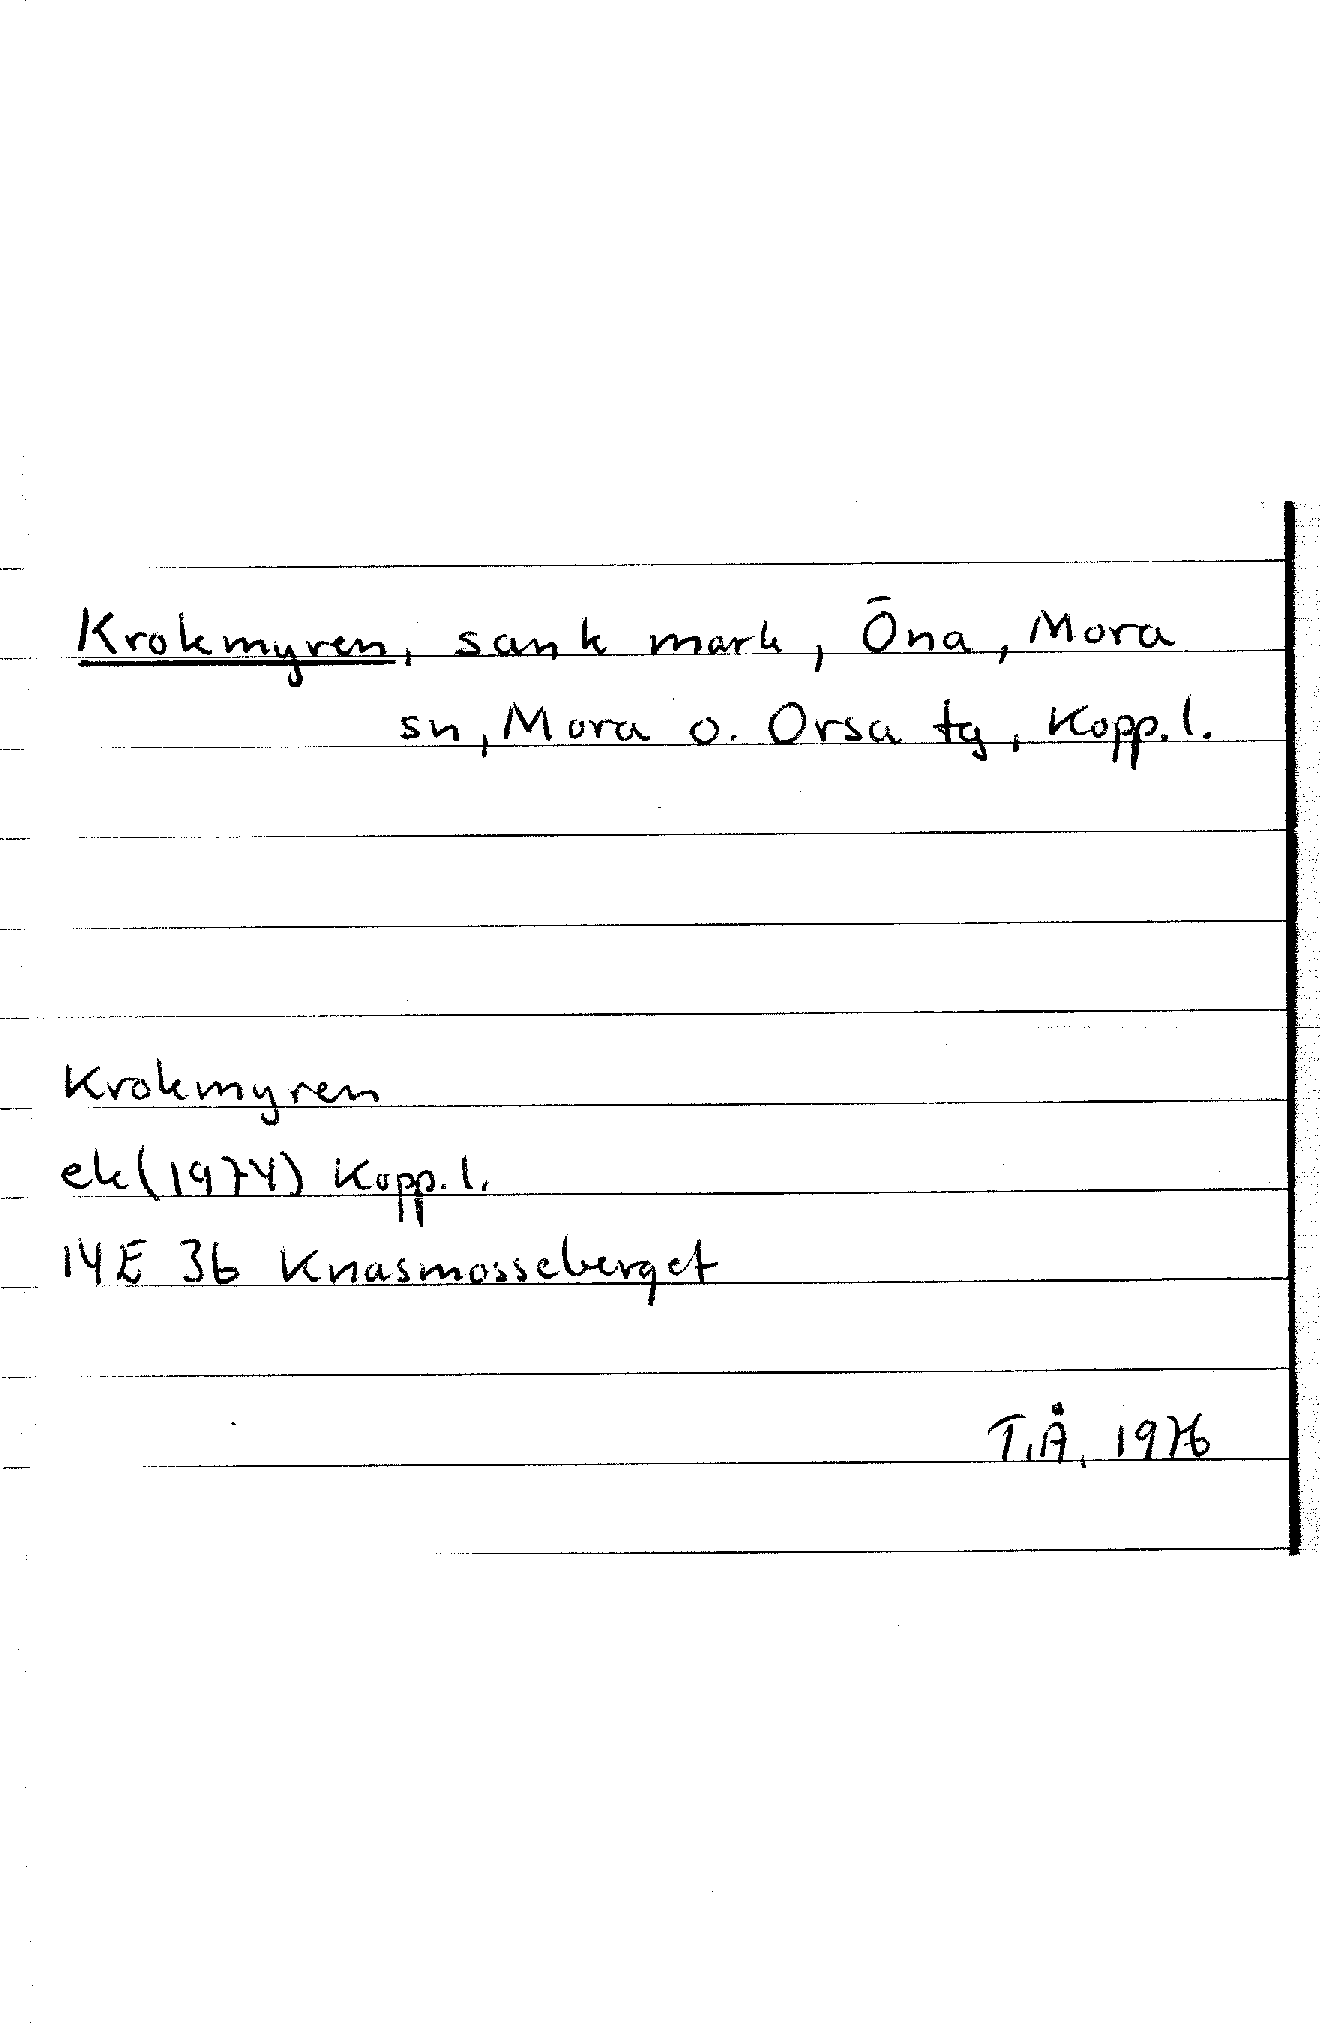 Krokmyren, sank mark, Öna, Mora
sn, Mora o. Orsa tg, Kopp.l.
Krokmyren
ek(1974) Kopp.l.
14E 3b Knasmosseberget
T.Å. 1976